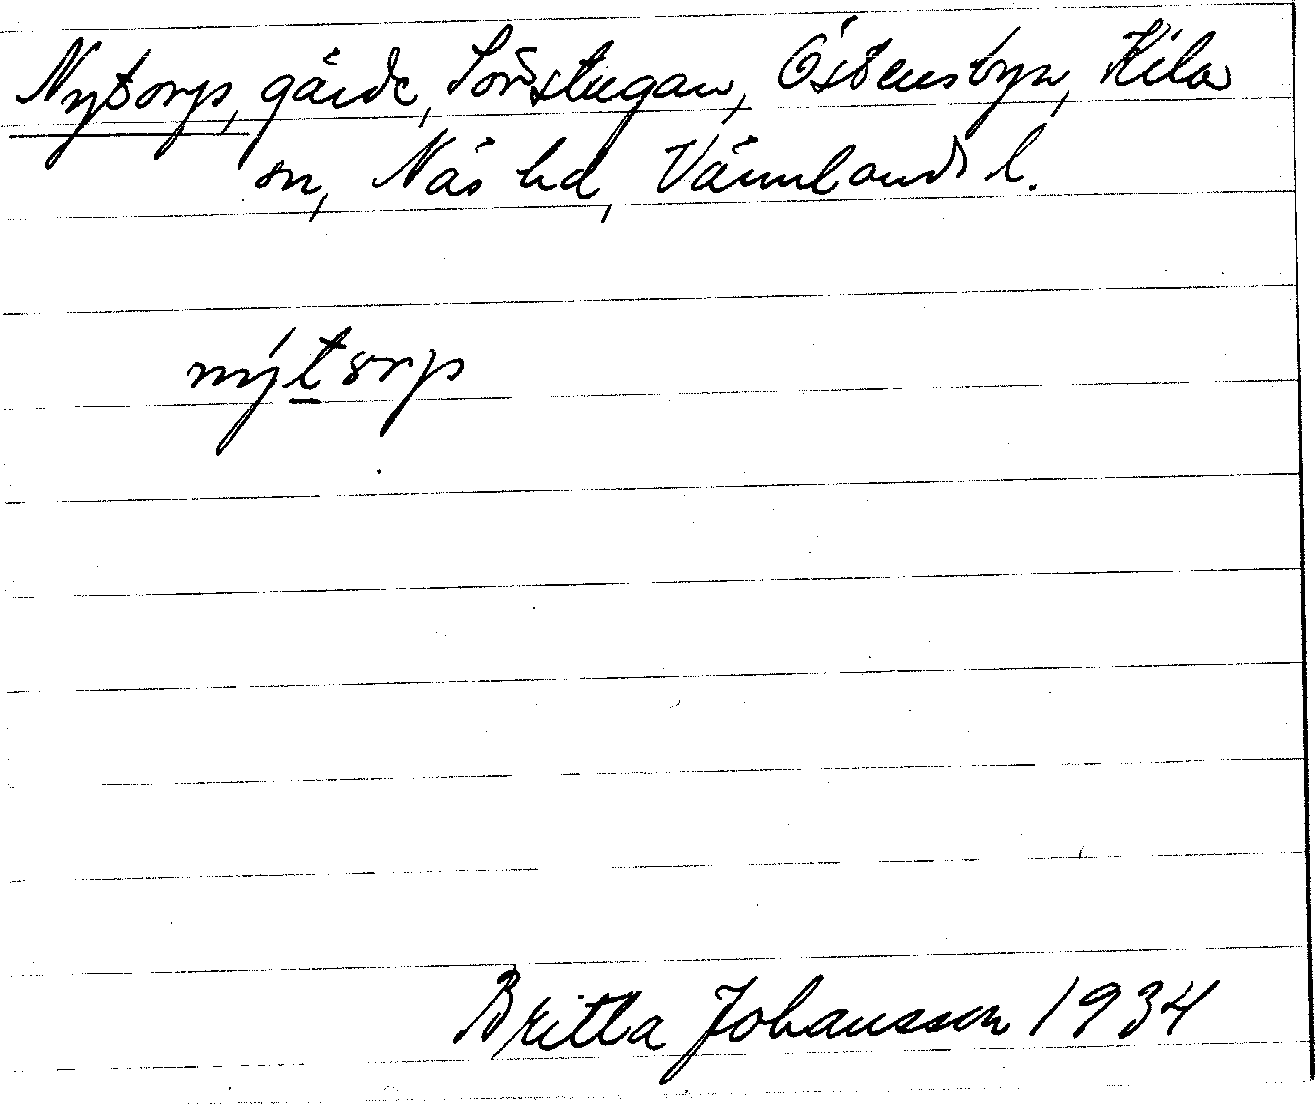 Nytorp, gärde, Sörstugan, Östensbyn, Kila
sn, Näs hd, Värmlands l.
nýtorp
Britta Johansson 1934